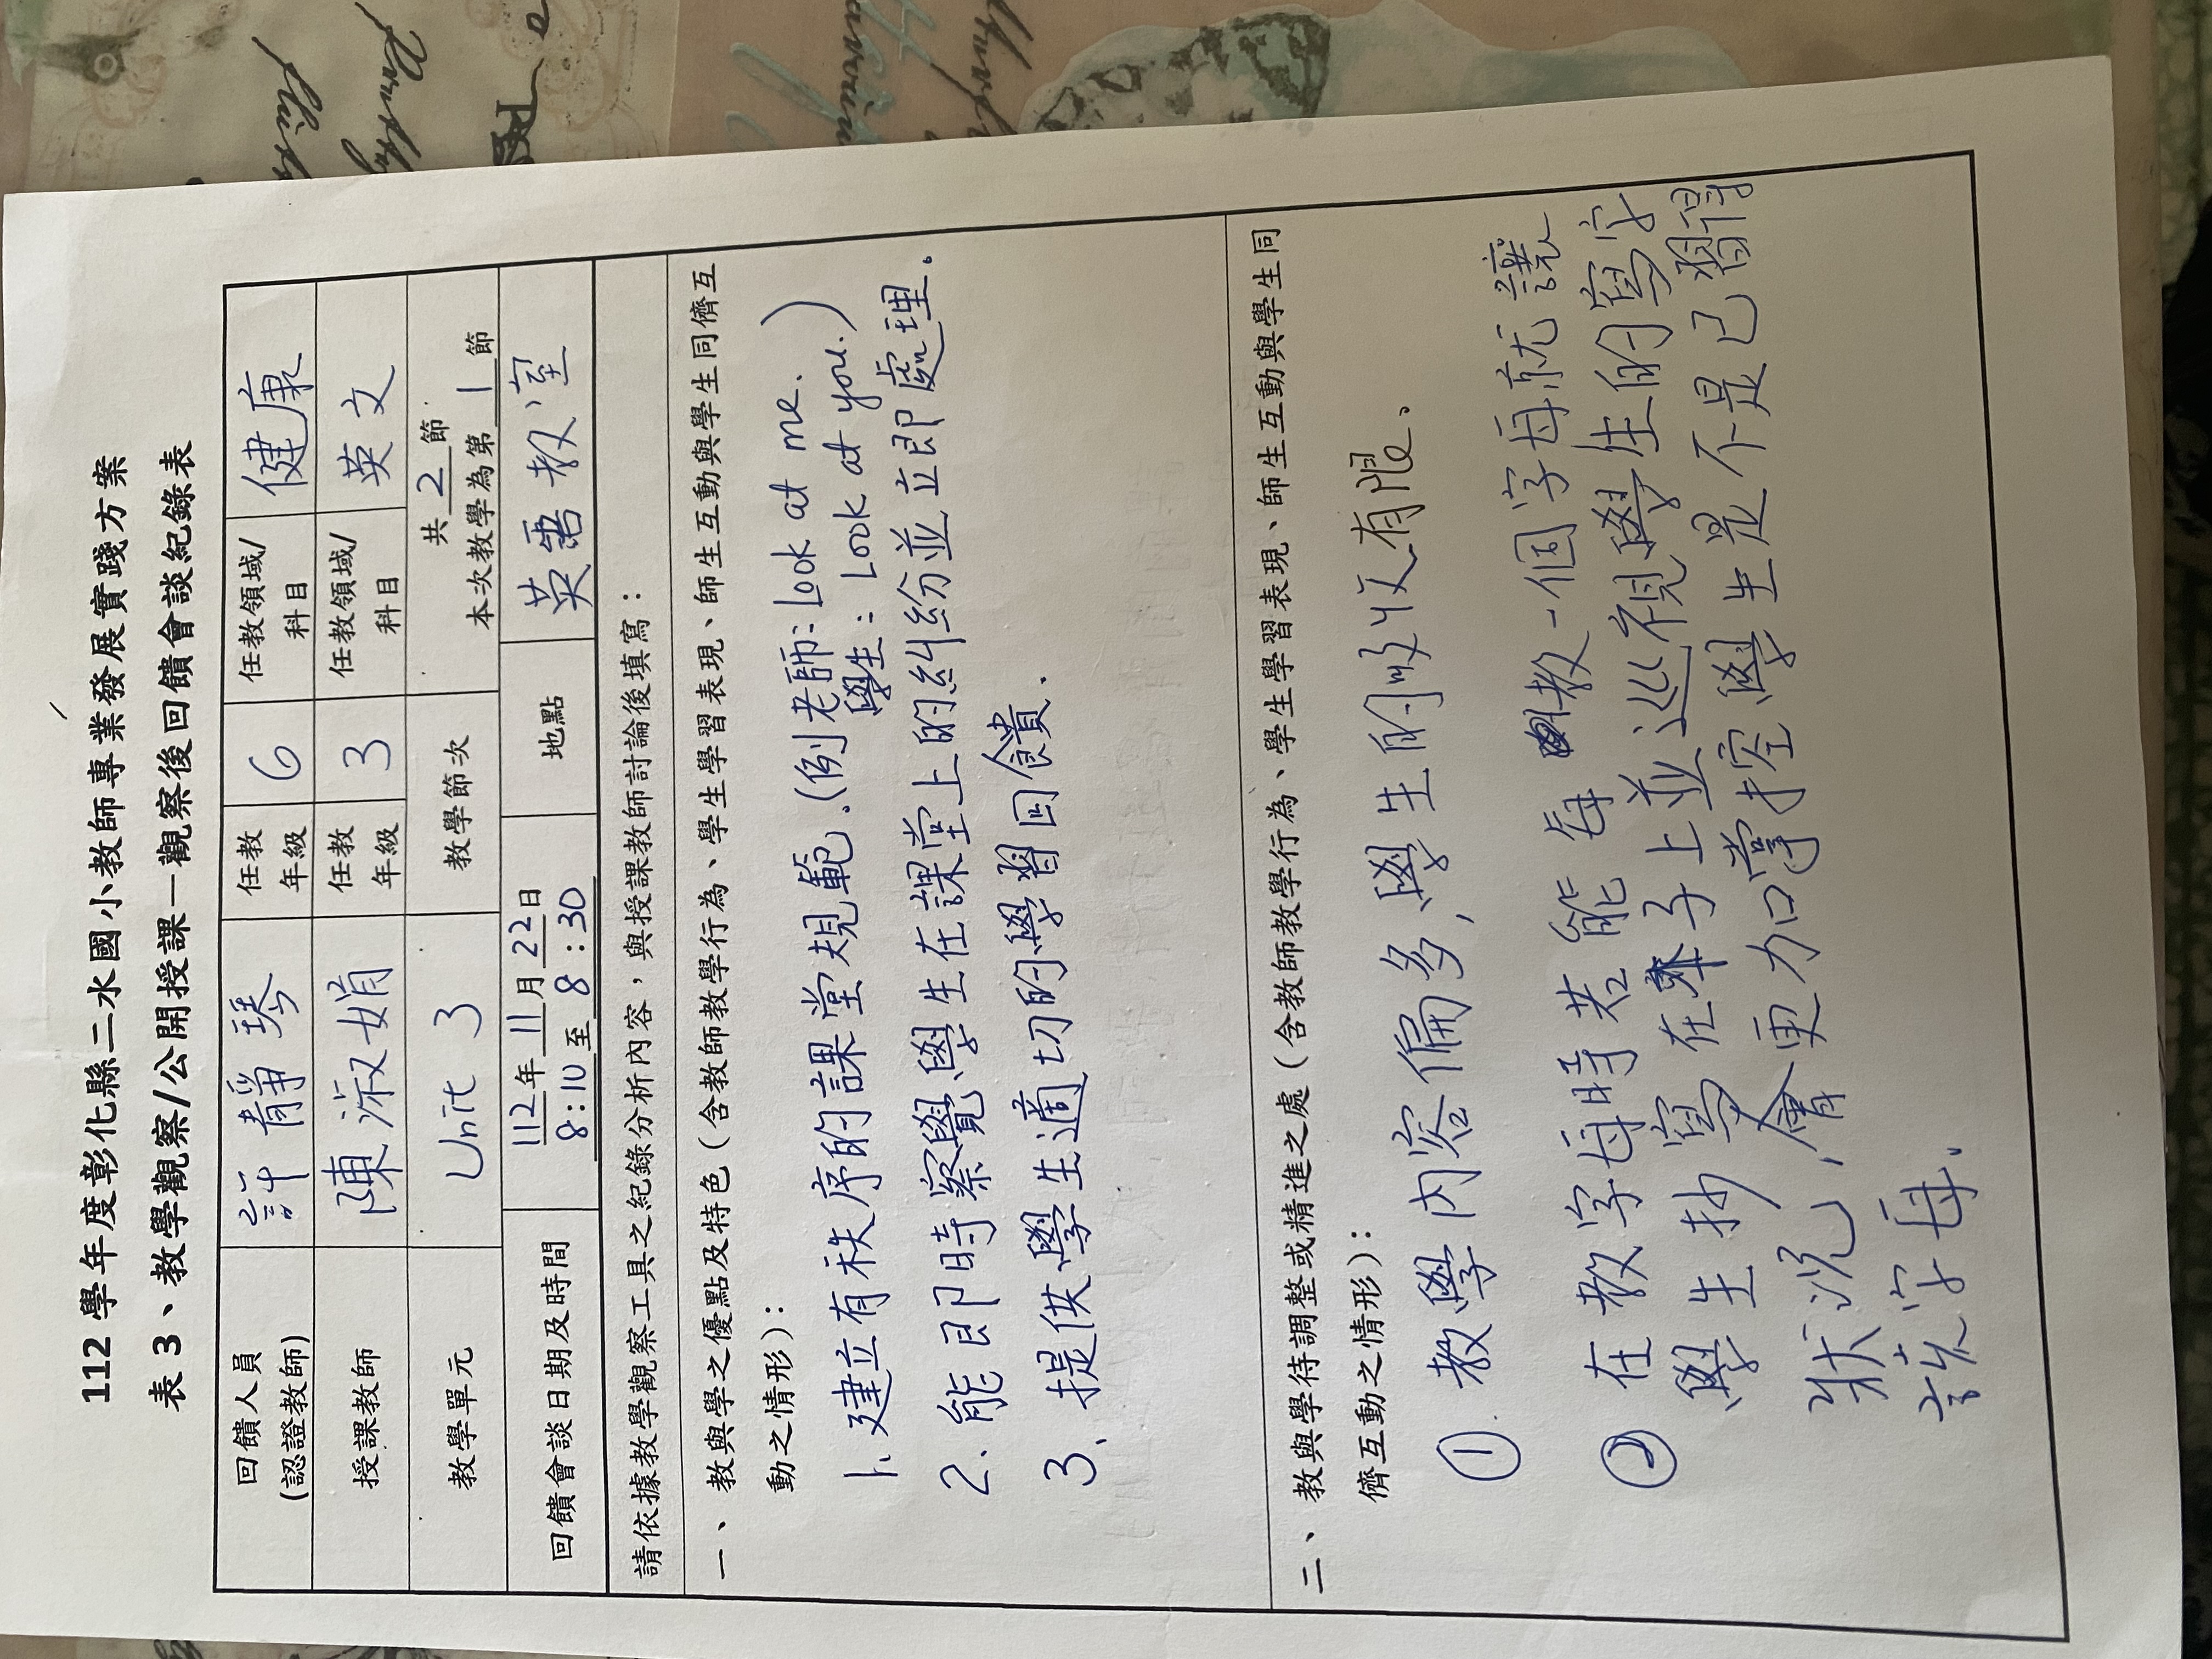 112 學年度彰化縣二水國小教師專業發展實踐方案
表 3、教學觀察/公開授課—觀察後回饋會談紀錄表
回饋人員
(認證教師)
許靜琴
任教
年級
6
任教領域/
科目
健康
授課教師
陳淑娟
任教
年級
3
任教領域/
科目
英文
教學單元
Unit 3
教學節次
共 2 節
本次教學為第 1 節
回饋會談日期及時間
112年11月22日
8:10至8:30
地點
英語教室
請依據教學觀察工具之紀錄分析內容,與授課教師討論後填寫:
一、教與學之優點及特色(含教師教學行為、學生學習表現、師生互動與學生同儕互
動之情形):
1.建立有秩序的課堂規範.(例老師:Look at me.
學生:Look at you.)
2.能即時察覺學生在課堂上的糾紛並立即處理.
3.提供學生適切的學習回饋.
二、教與學待調整或精進之處(含教師教學行為、學生學習表現、師生互動與學生同
儕互動之情形):
① 教學內容偏多,學生的吸收有限、
② 在教字母時若能每教一個字母就讓
學生抄寫在本子上並巡視學生的寫字
狀況,會更加掌控學生是不是已習得
該字母.